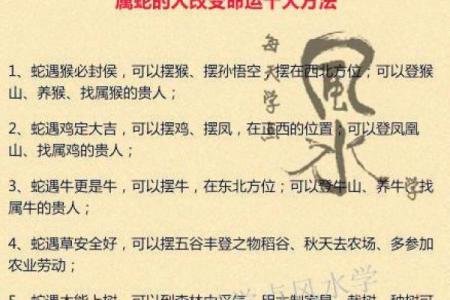 属蛇的人改变命运十大方法
每天学点
風水
学
1、蛇遇猴必封侯，可以摆猴、摆孙悟空，摆在西北方位；可以登猴
山、养猴、找属猴的贵人；
2、蛇遇鸡定大吉，可以摆鸡、摆凤，在正西的位置；可以登凤凰
山、找属鸡的贵人；
3、蛇遇牛更是牛，可以摆牛，在东北方位；可以登牛山、养牛、找
属牛的贵人；
4、蛇遇草安全好，可以摆五谷丰登之物稻谷、秋天去农场、多参加
农业劳动；
学点风水学